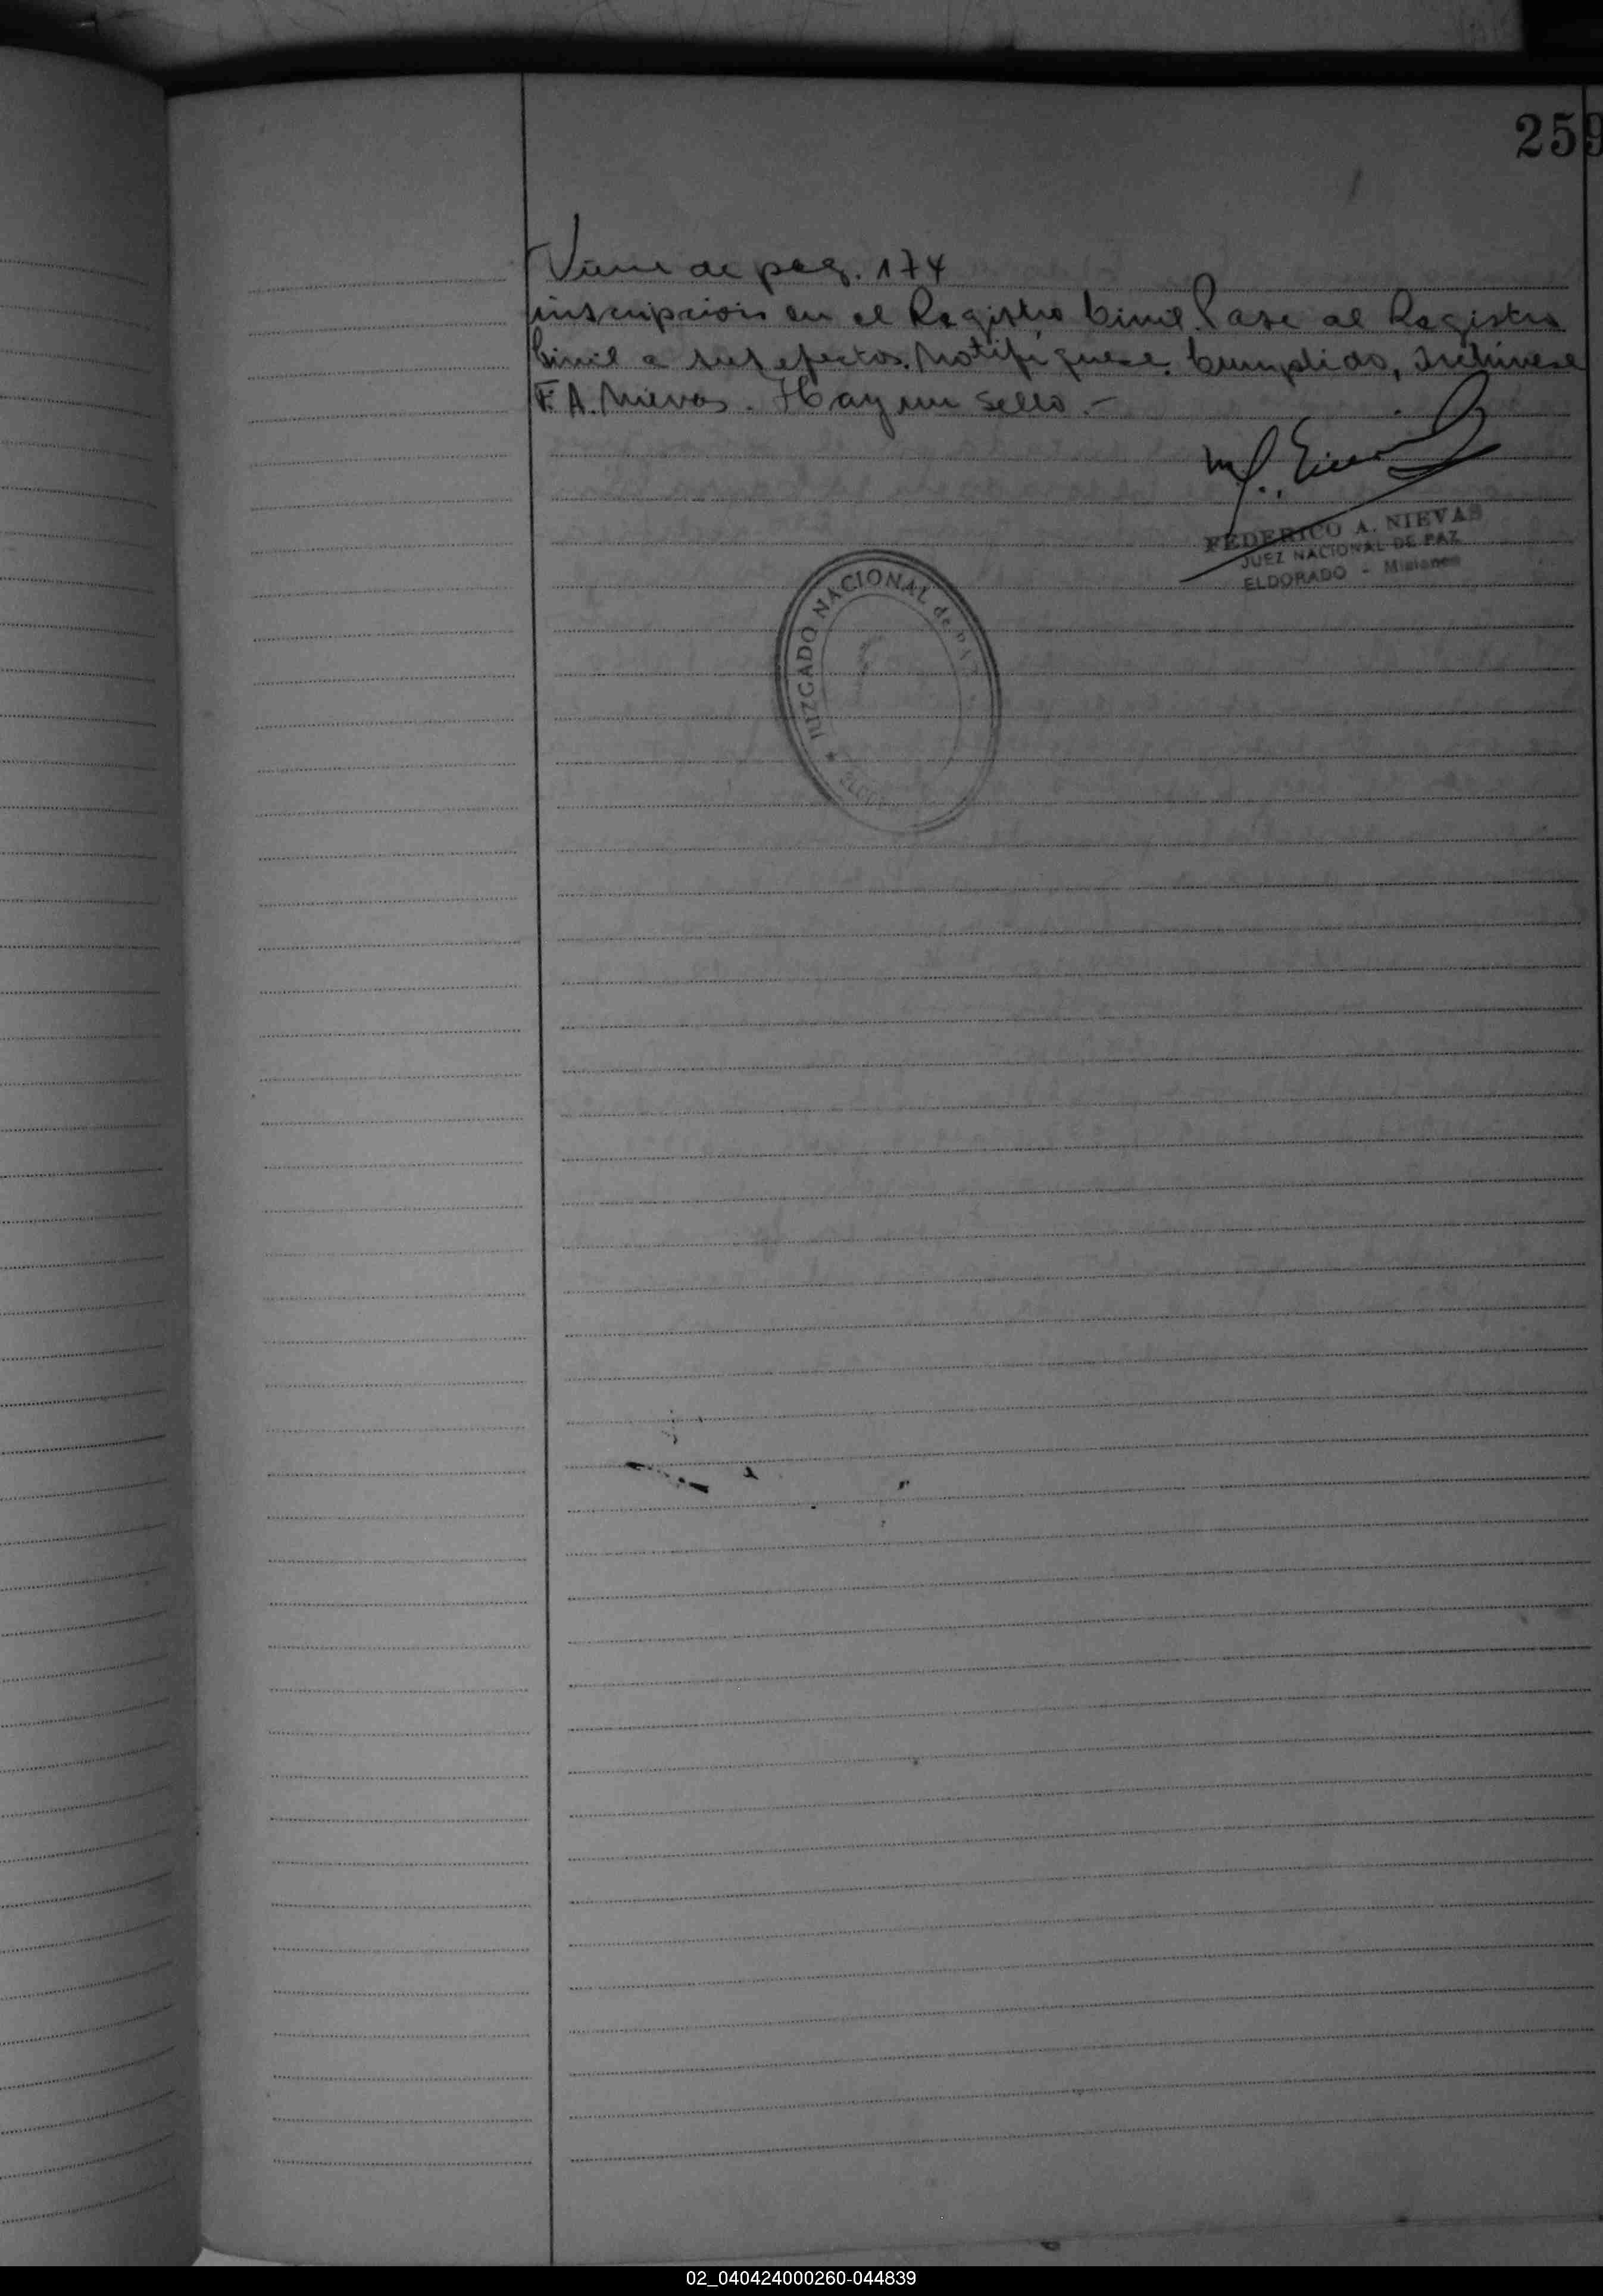 259
Viene de pag. 174
inscripcion en el Registro Civil. Pase al Registro
Civil a sus efectos. Notifíquese. Cumplido, Archívese
F. A. Nievas. Hay un sello.-
FEDERICO A. NIEVAS
JUEZ NACIONAL DE PAZ
ELDORADO - Misiones
JUZGADO NACIONAL de PAZ
02_040424000260-044839